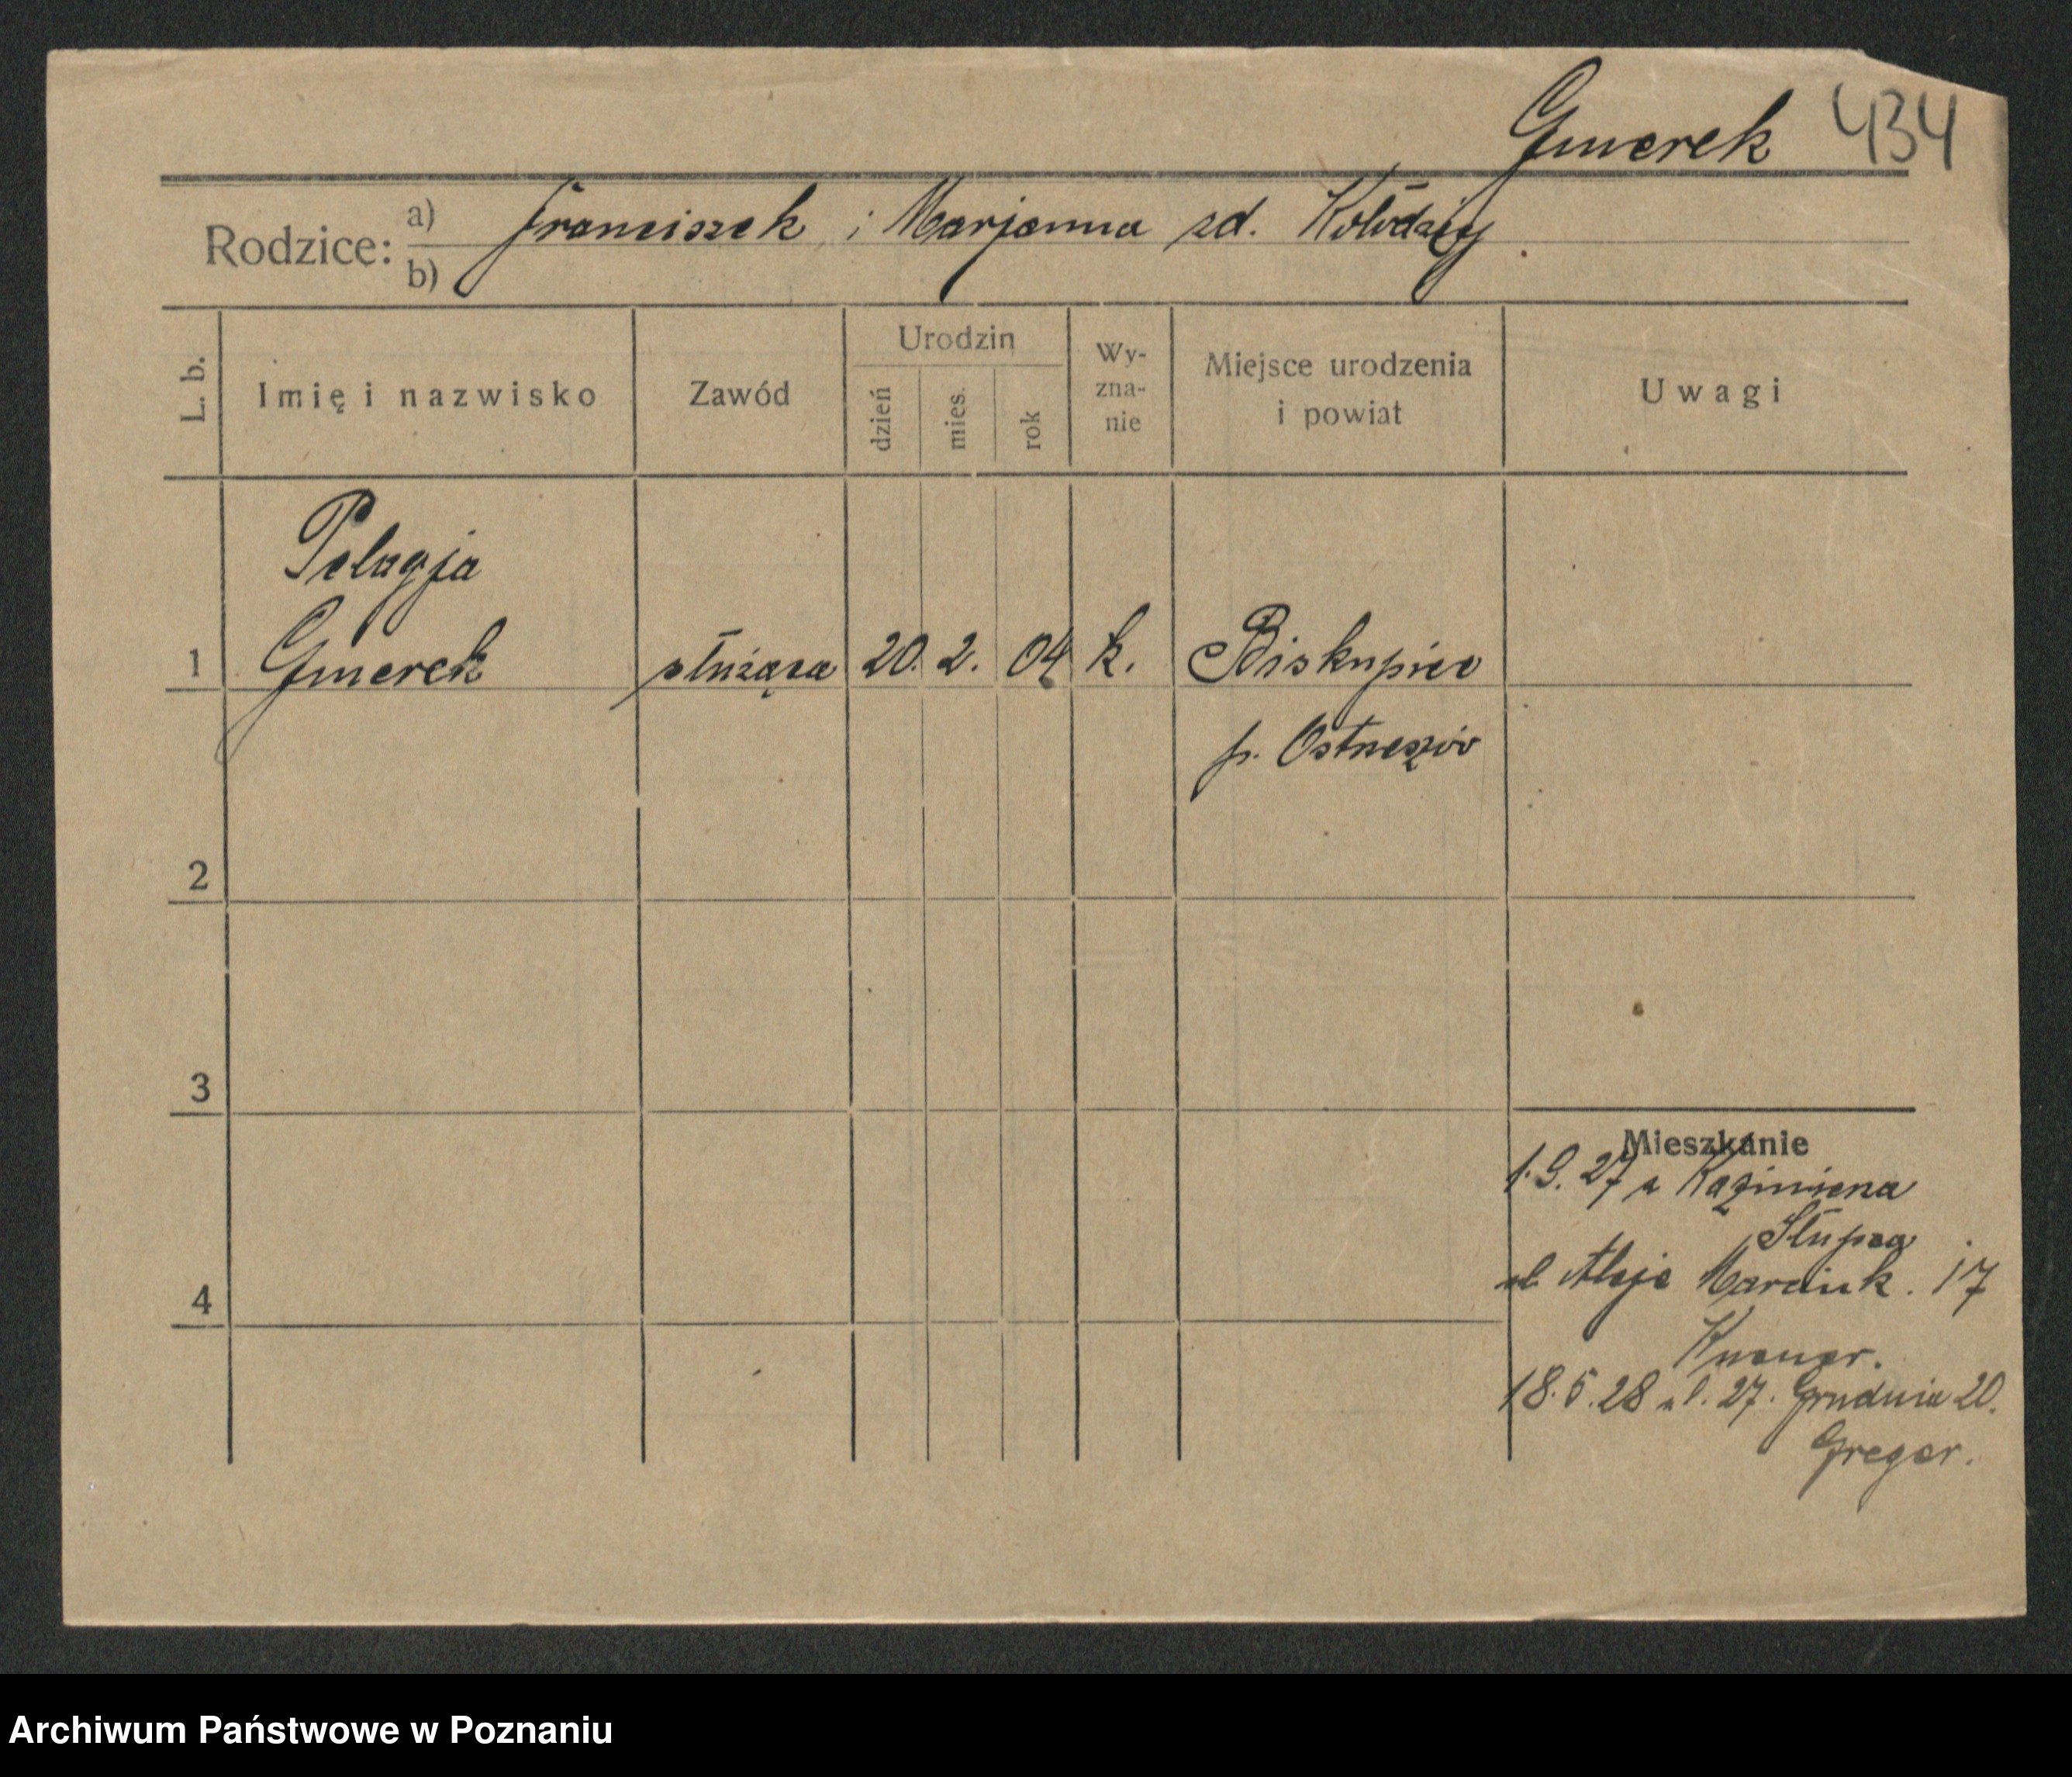 Gmerek 434
Rodzice: a) Franciszek i Marjanna zd. Kołodziej
b)
L. b. Imię i nazwisko Zawód Urodzin dzień mies. rok Wy-zna-nie Miejsce urodzenia i powiat Uwagi
Pelagja
1 Gmerek służąca 20. 2. 04 k. Biskupice
p. Ostrzeszów
2
3
Mieszkanie
1.9.27 z Kazimierza
Słupca
ul. Aleje Marcink. 17
4
Knauer.
18.5.28 ul. 27. Grudnia 20.
Greger.
Archiwum Państwowe w Poznaniu